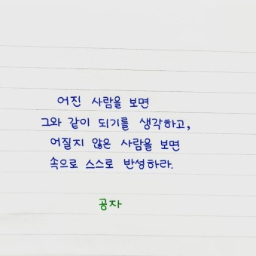 어진 사람을 보면
그와 같이 되기를 생각하고,
어질지 않은 사람을 보면
속으로 스스로 반성하라.
공자